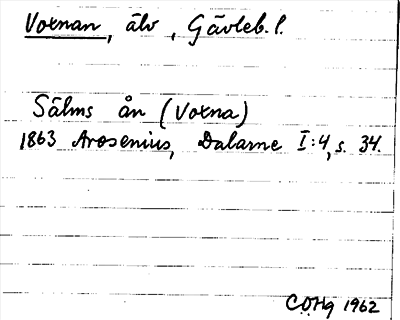 Voxnan, älv, Gävleb. l.
Sälms ån (Voxna)
1863 Arosenius, Dalarne I:4, s. 34.
C.O.Hg 1962